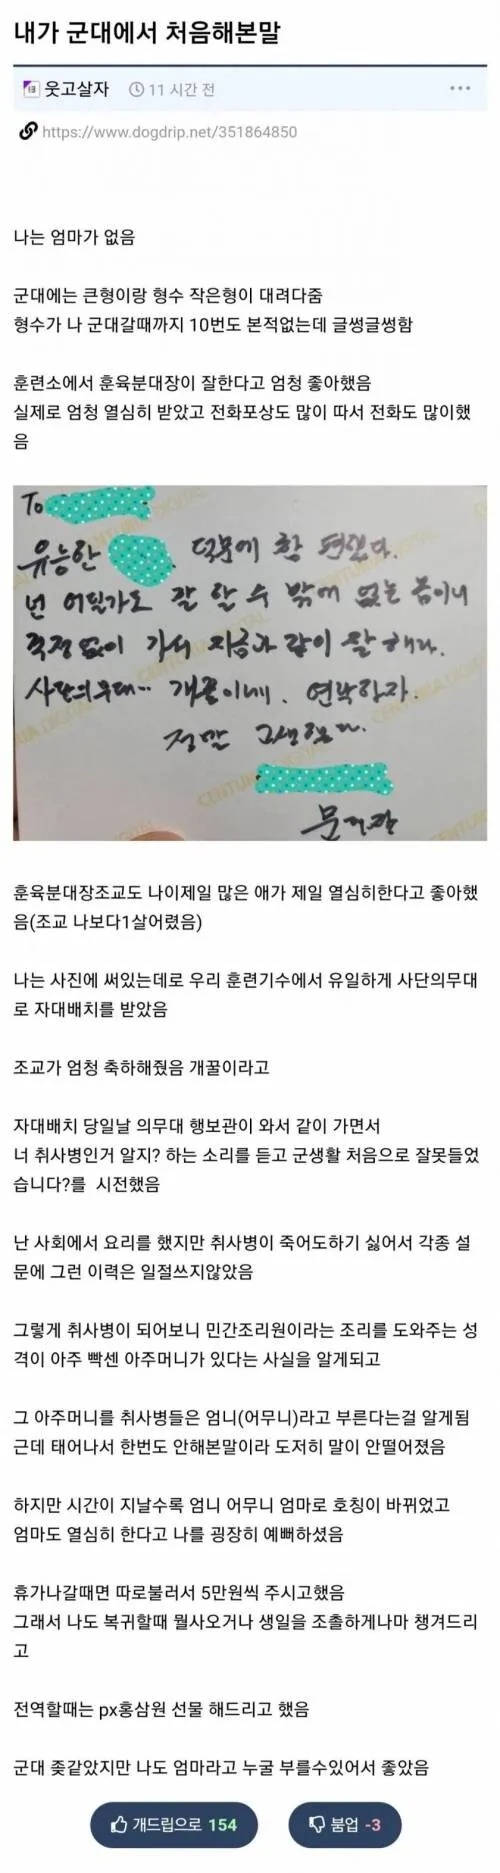 내가 군대에서 처음해본말
웃고살자
11 시간 전
https://www.dogdrip.net/351864850
나는 엄마가 없음
군대에는 큰형이랑 형수 작은형이 대려다줌
형수가 나 군대갈때까지 10번도 본적없는데 글썽글썽함
훈련소에서 훈육분대장이 잘한다고 엄청 좋아했음
실제로 엄청 열심히 받았고 전화포상도 많이 따서 전화도 많이했
음
To
유능한 덕분에 참 편했다.
넌 어딜가도 잘 할 수 밖에 없는 몸이니
걱정 없이 가서 지금과 같이 잘 해라.
사단의무대... 개꿀이네. 연락하자.
정말 고생했다.
CENTURIA DIGITAL
훈육분대장조교도 나이제일 많은 애가 제일 열심히한다고 좋아했
음(조교 나보다1살어렸음)
나는 사진에 써있는데로 우리 훈련기수에서 유일하게 사단의무대
로 자대배치를 받았음
조교가 엄청 축하해줬음 개꿀이라고
자대배치 당일날 의무대 행보관이 와서 같이 가면서
너 취사병인거 알지? 하는 소리를 듣고 군생활 처음으로 잘못들었
습니다?를 시전했음
난 사회에서 요리를 했지만 취사병이 죽어도하기 싫어서 각종 설
문에 그런 이력은 일절쓰지않았음
그렇게 취사병이 되어보니 민간조리원이라는 조리를 도와주는 성
격이 아주 빡센 아주머니가 있다는 사실을 알게되고
그 아주머니를 취사병들은 엄니(어무니)라고 부른다는걸 알게됨
근데 태어나서 한번도 안해본말이라 도저히 말이 안떨어졌음
하지만 시간이 지날수록 엄니 어무니 엄마로 호칭이 바뀌었고
엄마도 열심히 한다고 나를 굉장히 예뻐하셨음
휴가나갈때면 따로불러서 5만원씩 주시고했음
그래서 나도 복귀할때 뭘사오거나 생일을 조촐하게나마 챙겨드리
고
전역할때는 px홍삼원 선물 해드리고 했음
군대 좆같았지만 나도 엄마라고 누굴 부를수있어서 좋았음
개드립으로 154
붐업 -3